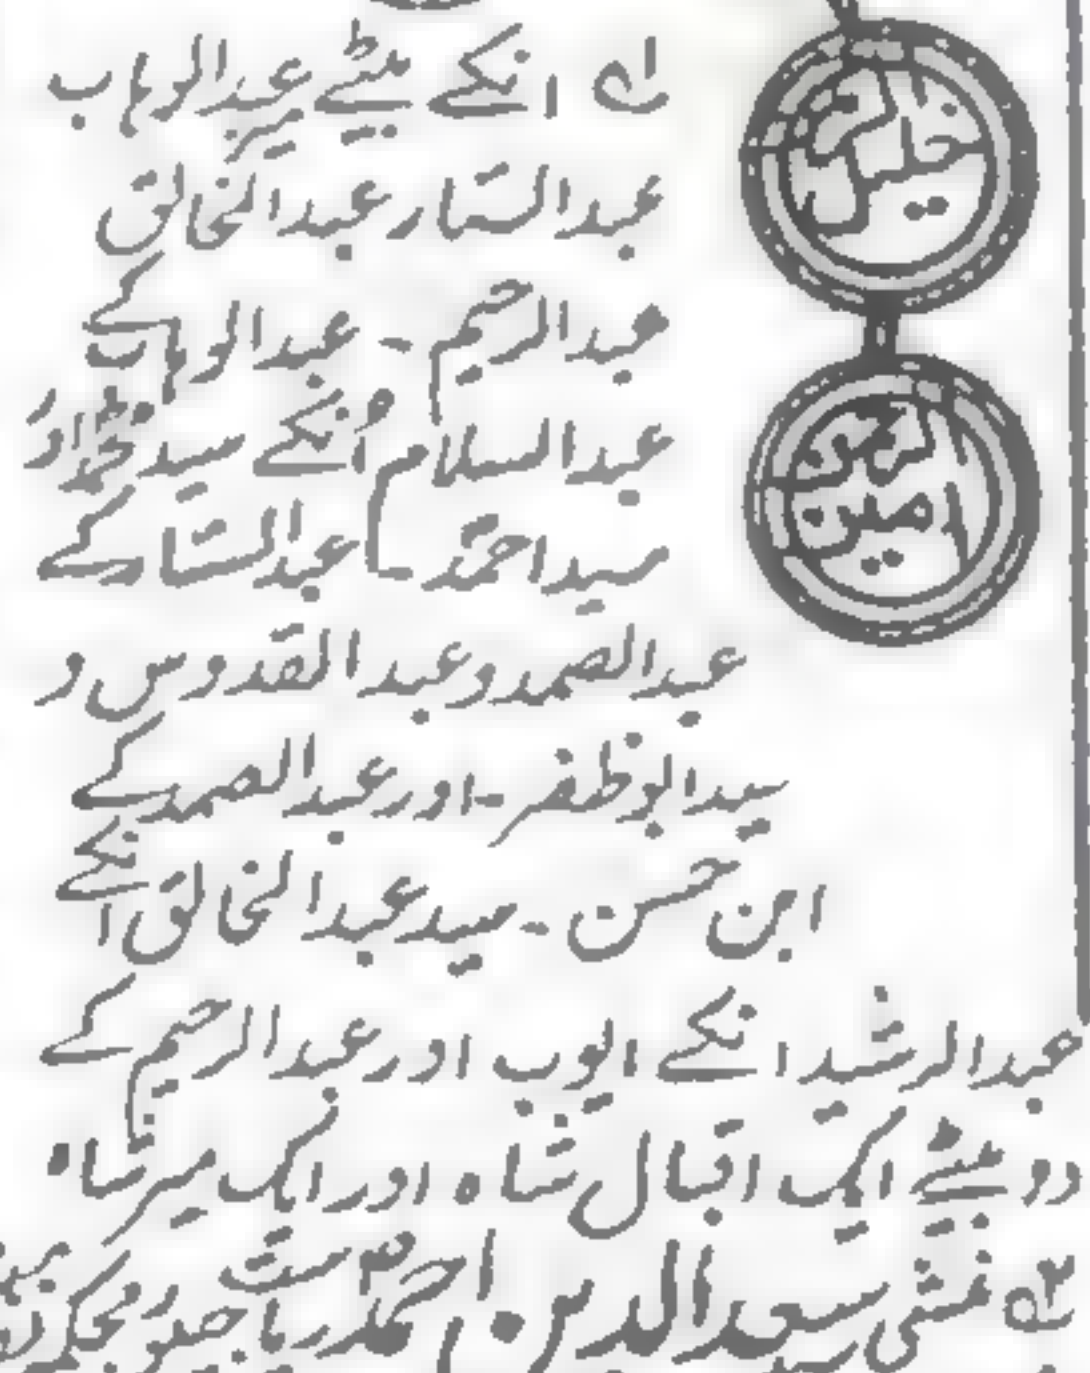 ۱؎ انکے بیٹے میر عبدالوہاب
عبدالستار عبدالخالق
عبدالرحیم - عبدالوہاب کے
عبدالسلام اُنکے سید محمد اور
سید احمد - عبدالستار کے
عبدالصمد و عبدالقدوس و
سید ابوظفر - اور عبدالصمد کے
ابن حسن - سید عبدالخالق انکے
عبدالرشید انکے ایوب اور عبدالرحیم کے
دو بیٹے ایک اقبال شاہ اور ایک میر شاہ
۲؎ منشی سعدالدین احمد ریاست
خلیل الرحمن
امین الرحمن